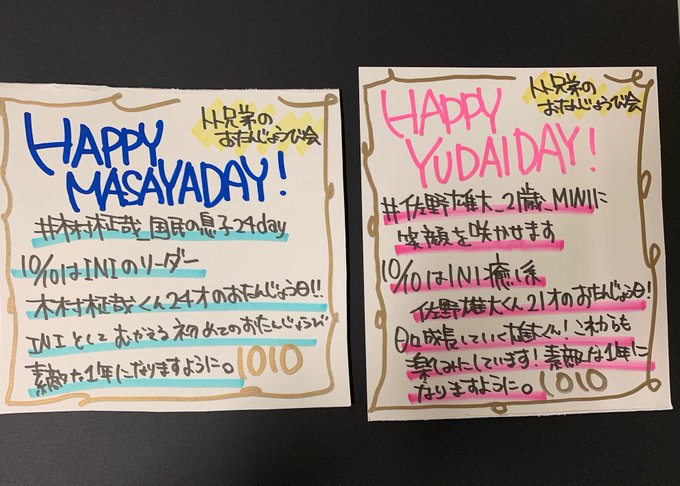 トト兄弟の
おたんじょうび会
HAPPY
MASAYADAY!
#木村柾哉_国民の息子24day
10/10はINIのリーダー
木村柾哉くん24才のおたんじょう日!!
INIとしてむかえる初めてのおたんじょうび
素敵な1年になりますように。1010
トト兄弟の
おたんじょうび会
HAPPY
YUDAIDAY!
#佐野雄大_21歳_MINIに
笑顔を咲かせます
10/10はINI癒し係
佐野雄大くん21才のおたんじょう日!
日々成長していく雄大くん!これからも
楽しみにしています!素敵な1年に
なりますように。1010